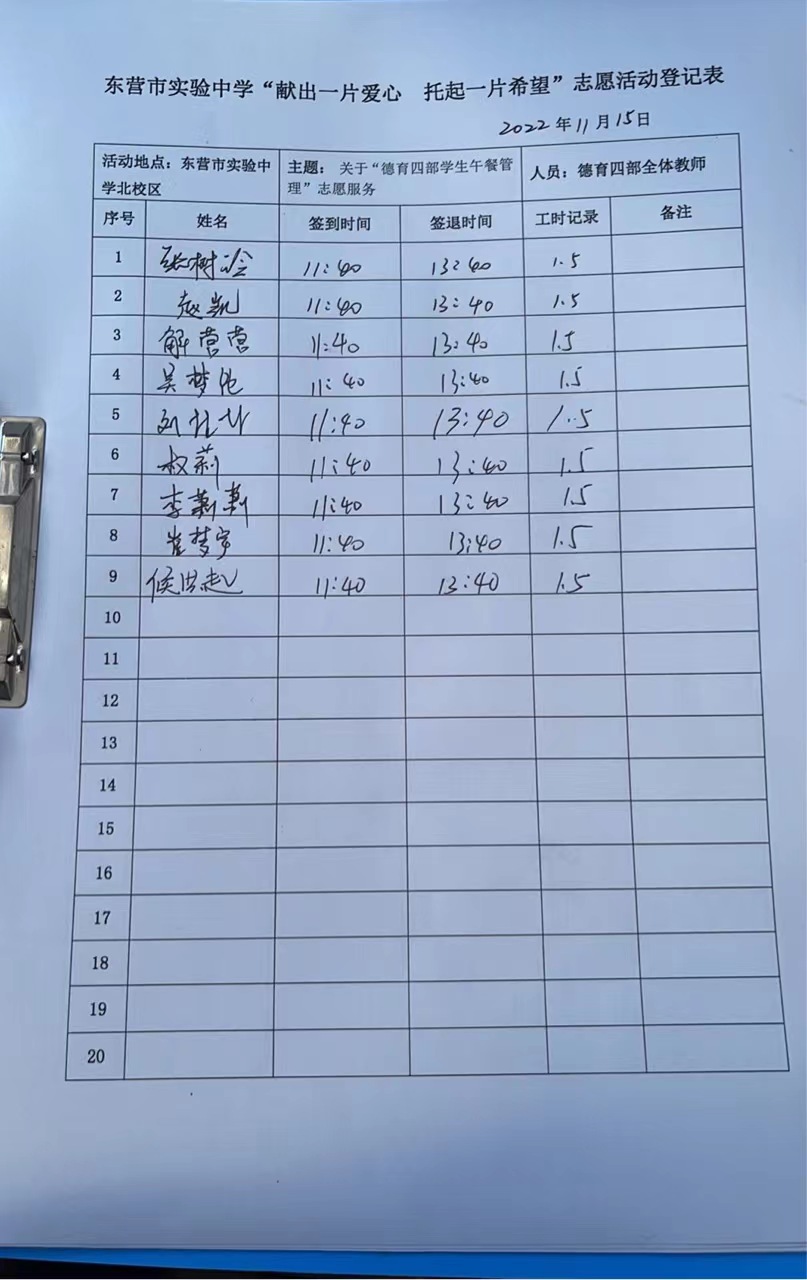 东营市实验中学“献出一片爱心 托起一片希望”志愿活动登记表
2022年11月15日
活动地点：东营市实验中学北校区 主题：关于“德育四部学生午餐管理”志愿服务 人员：德育四部全体教师
序号 姓名 签到时间 签退时间 工时记录 备注
1 张树 11:40 13:40 1.5
2 赵凯 11:40 13:40 1.5
3 解营营 11:40 13:40 1.5
4 吴梦 11:40 13:40 1.5
5 刘 11:40 13:40 1.5
6 权莉 11:40 13:40 1.5
7 李 11:40 13:40 1.5
8 崔梦宇 11:40 13:40 1.5
9 侯洪 11:40 13:40 1.5
10
11
12
13
14
15
16
17
18
19
20